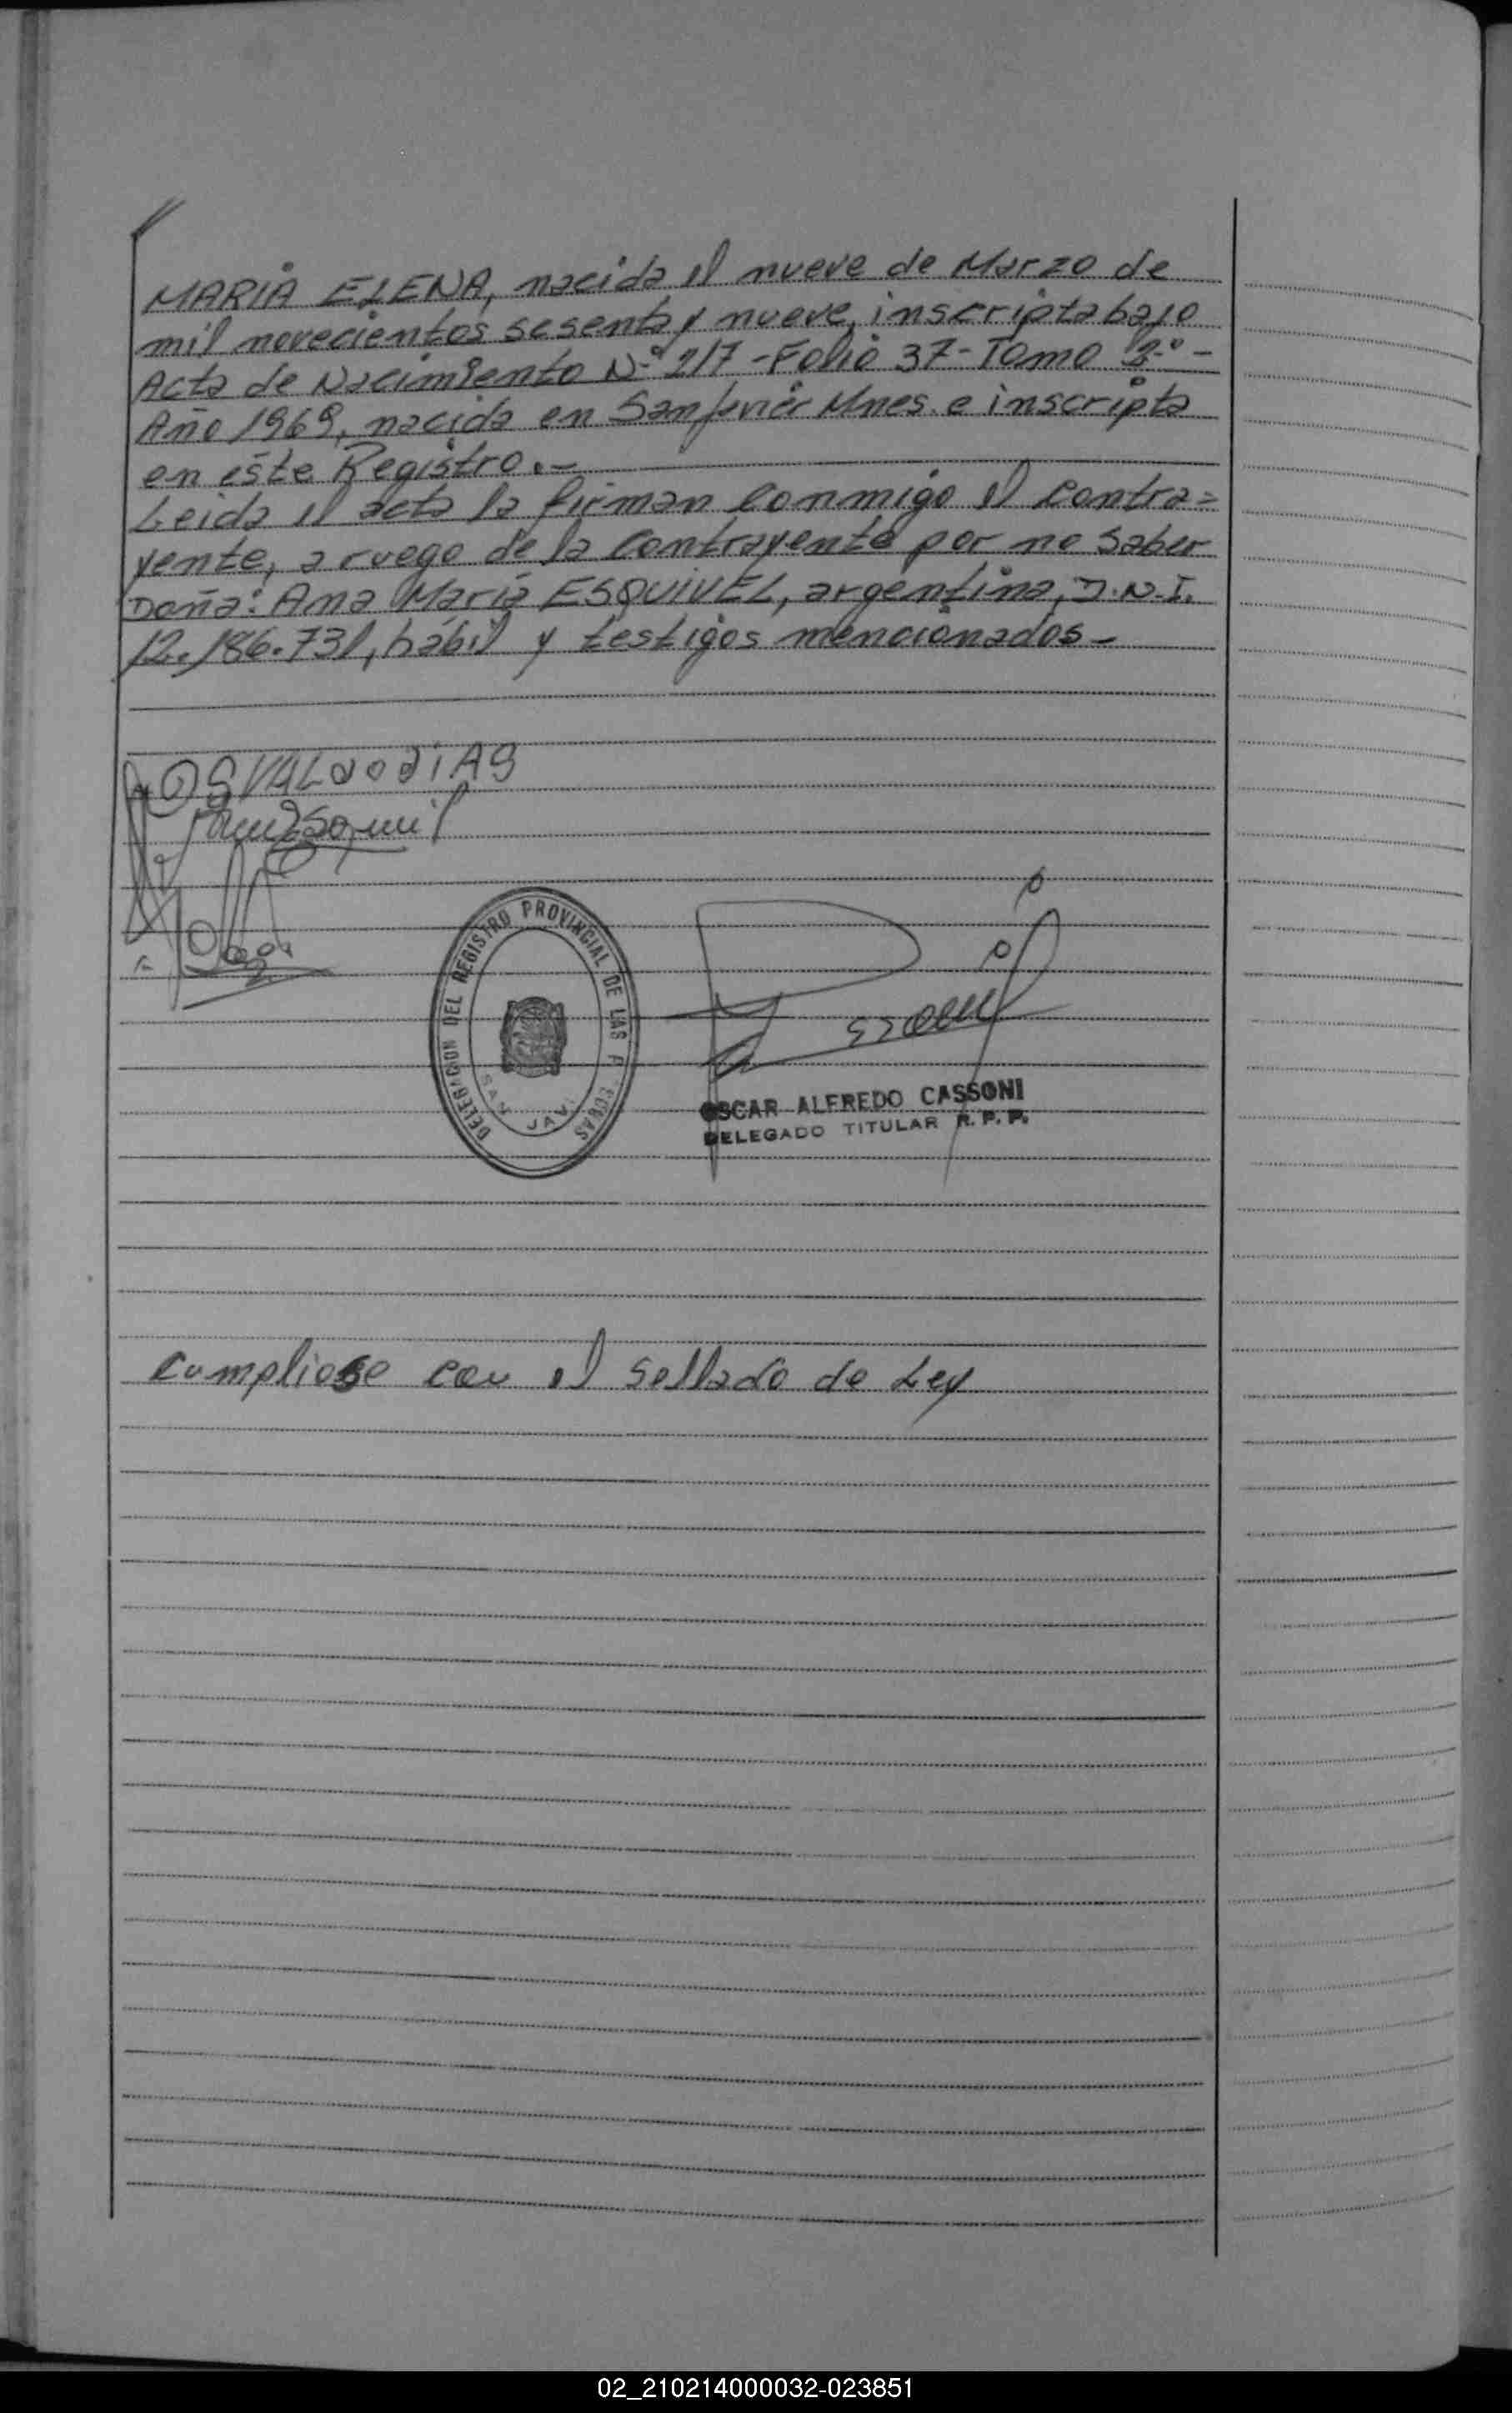 MARIA ELENA, nacida el nueve de Marzo de
mil novecientos sesenta y nueve, inscripta bajo
Acta de Nacimiento Nº 217 - Folio 37 - Tomo 2º -
Año 1969, nacida en San Javier Mnes. e inscripta
en este Registro.-
Leida el acta la firman conmigo el contra=
yente, a ruego de la contrayente por no saber
Doña: Ana María ESQUIVEL, argentina, D.N.I.
12.186.731, hábil y testigos mencionados -
OSVALdo diAS
DELEGACION DEL REGISTRO PROVINCIAL DE LAS
SAN JAV
OSCAR ALFREDO CASSONI
DELEGADO TITULAR R. P. P.
Cumpliose con el sellado de Ley
02_210214000032-023851